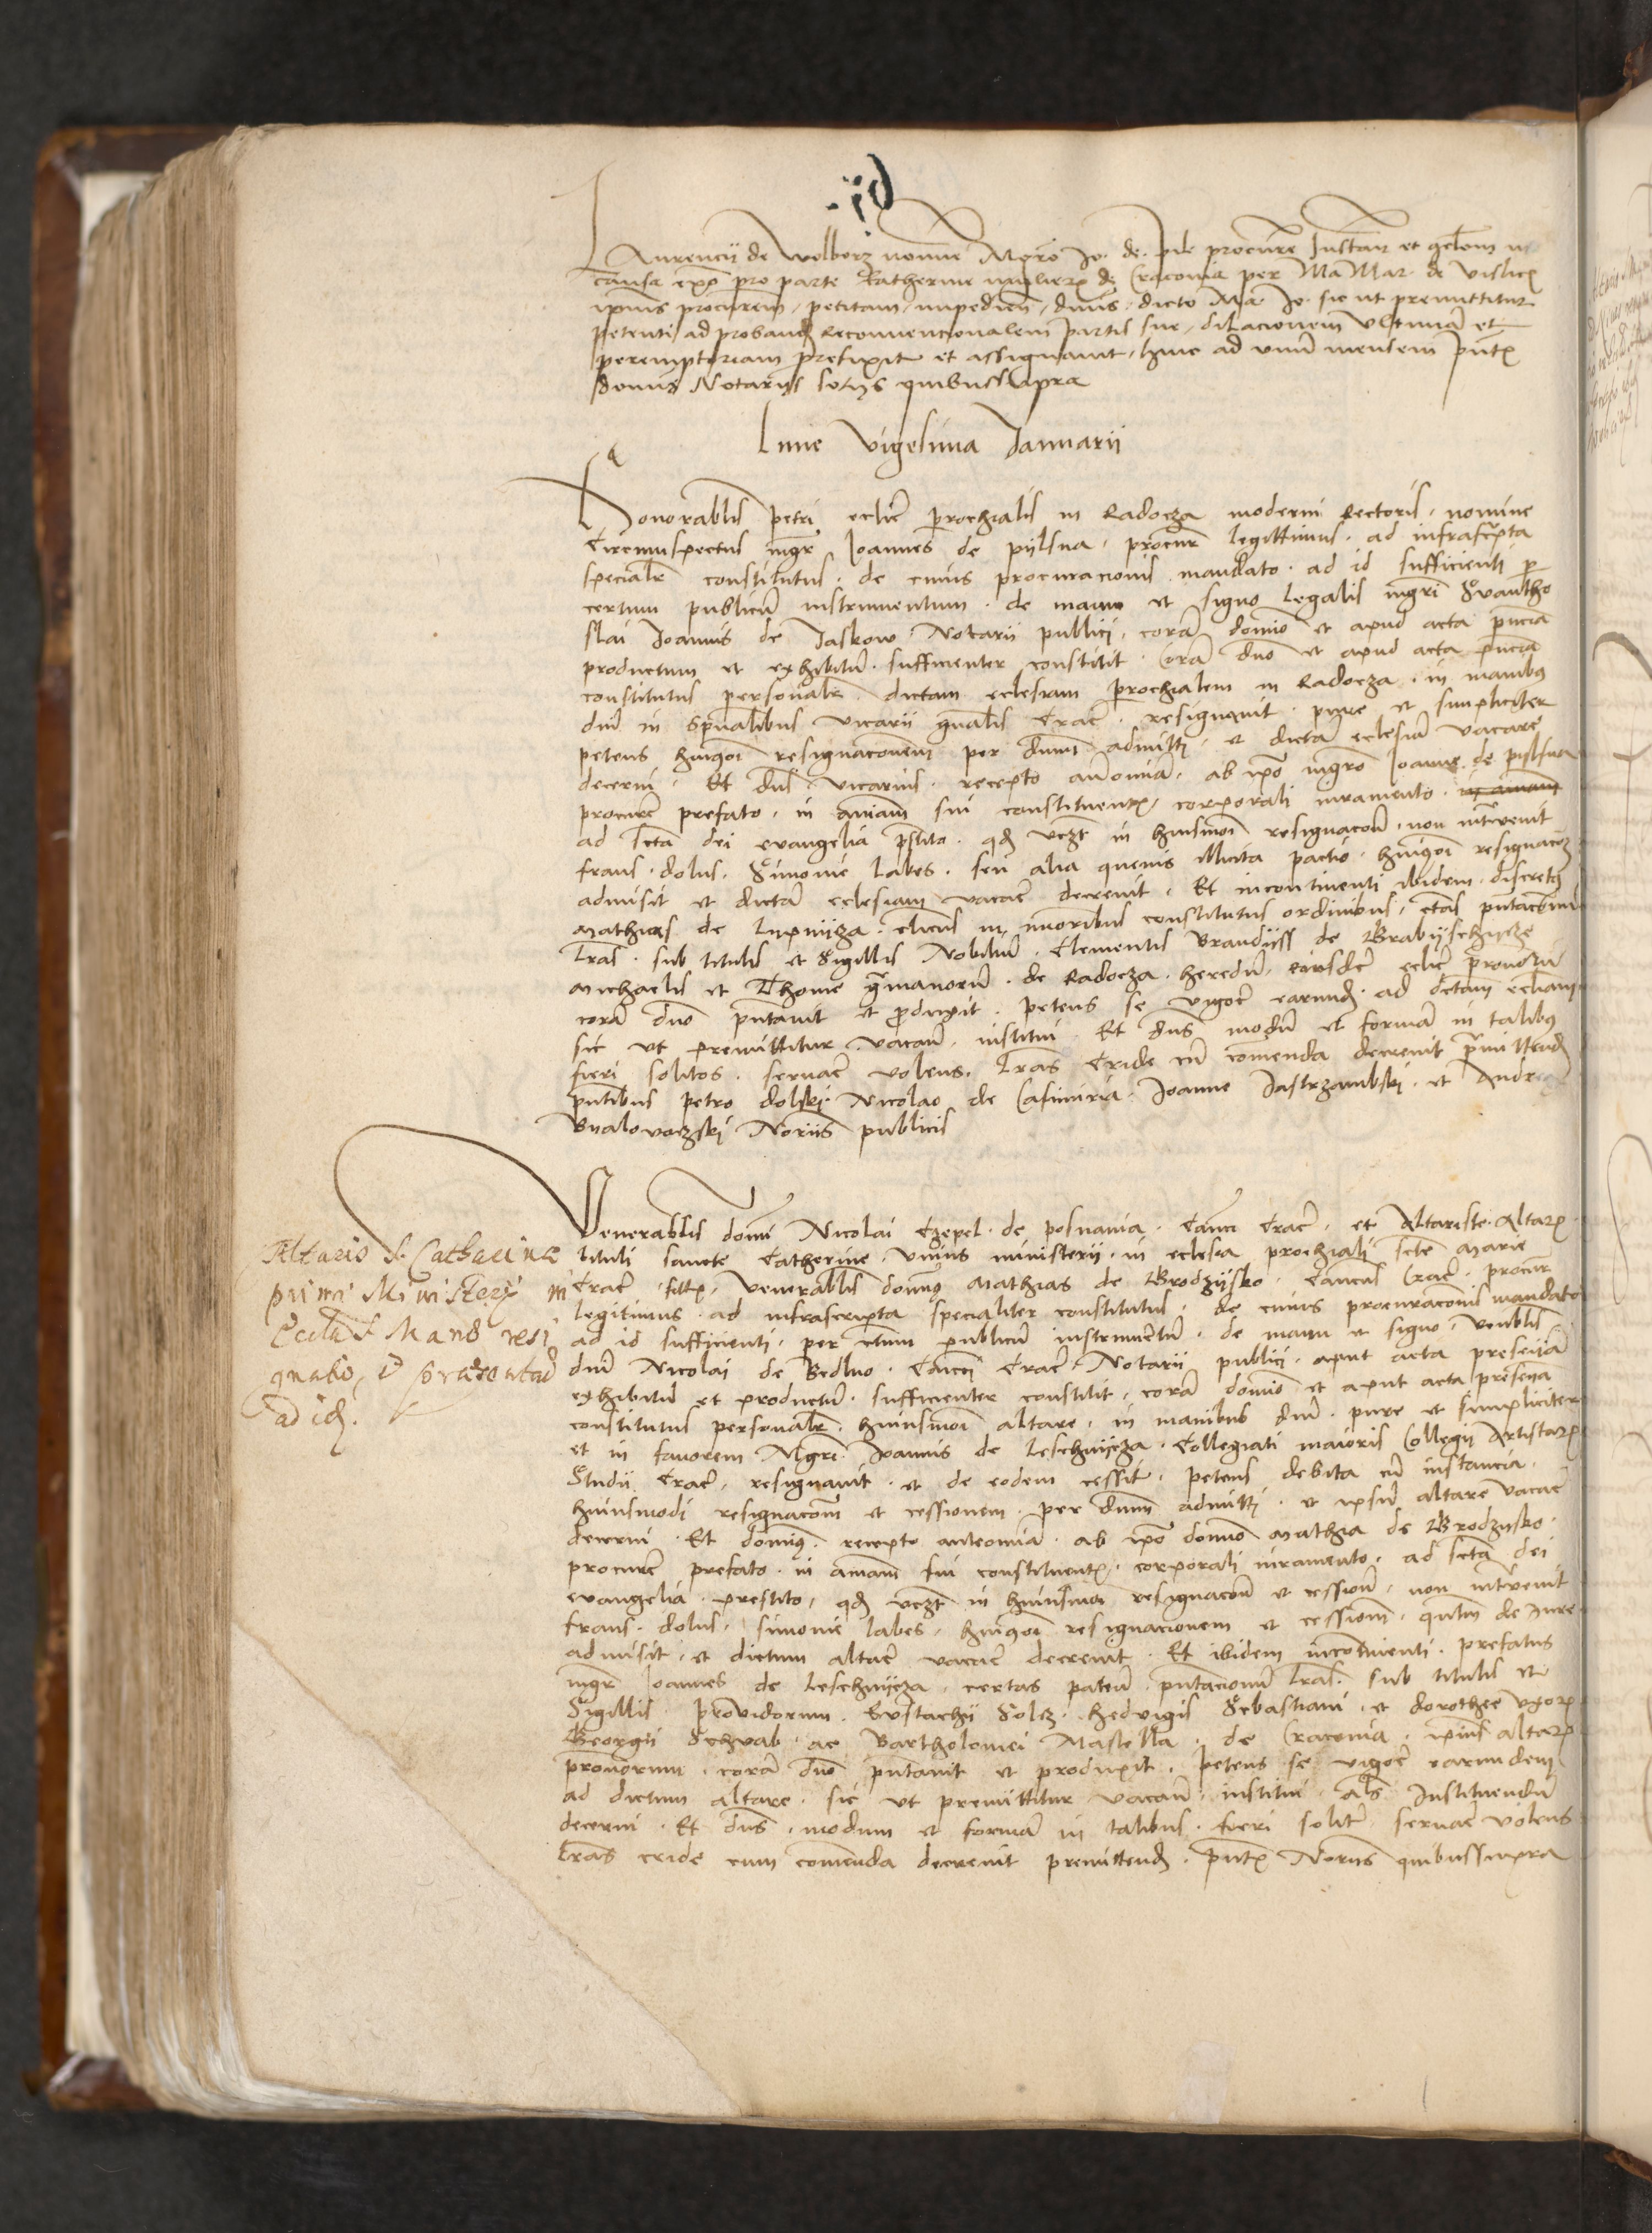 Laurencii de Wolborz nomine Mgro Jo. de Pile procurore Instan et
causa expo pro parte Katherine mulieris de Cracovia per Ma Mar de Vislicza
ipsius procurem petitam impedien dnus dicto Ma Jo. sic ut premittitur
petenti ad proband Reconvencionalem partis sue dilacionem ultimam et
peremptoriam prefixit et assignavit hinc ad unum mensem pntibus
Notariis quibussupra
Lune Vigesima Januarii
Honorablis petri eclie parochialis in Radocza moderni Rectoris nomine
Circumspectus mgr Joannes de pylsna procur legittimus ad infrascripta
specialr constitutus de cuius procuracionis mandato ad id sufficienti per
certum publicum instrumentum de manu et signo legalis mgri Svantho
slai Joannis de Jaskow Notarii publici coram domino et apud acta pncia
productum et exhibitum sufficienter constitit Coram dno et apud acta pncia
constitutus personalr dictam eclesiam parochialem in Radocza in manibus
dni in spualibus vicarii gnalis Crac resignavit pure et simpliciter
petens huiusmoi resignacionem per dnum admitti et dictam eclesiam vacare
decerni Et dns vicarius recepto anteomnia ab ipso mgro Joanne de pylsna
procure prefato in animam sui constituentis corporali iuramento
ad scta dei evangelia pstito qd vczt in huiusmoi resignacone non intervenit
fraus dolus Simonie labes seu alia quevis illicita pactio huiusmoi resignacoem
admisit et dictam eclesiam vacare decrevit Et incontinenti ibidem discretus
Mathias de Lypnycza clicus in minoribus constitutus ordinibus ctas pntaconis
lras sub titulis et Sigillis Nobilium Clementis Brandyss de Brabyschycze
Michaelis et Thome germanorum de Radocza heredum eiusdem eclie pronorum
coram dno pntavit et produxit petens se vigore earund ad dctam ecliam
sic ut premittitur vacan institui Et dns modum et formam in talibus
fieri solitos servare volens lras Cride cum comenda decrevit premittend
pntibus petro dolski Nicolao de Casimiria Joanne Jastrzambski et Andrea
Byalovoczski Noriis publicis
Venerablis domni Nicolai Czepel de posnania Canci Crac et Altariste Altaris
tituli sancte Catherine unius ministerii in eclesia prochiali scte Marie
Crac venerablis domnus Mathias de Brodzysko Cancus Crac procur
legitimus ad infrascripta specialiter constitutus de cuius procuraconis mandato
ad id sufficienti per ctum publicum instrumentum de manu et signo venblis
dni Nicolai de Bedlno Canci Crac Notarii publici apnt acta presencia
exhibitum et productum sufficienter constitit coram domino et apnt acta presencia
constitutus personalr huiusmoi altare in manibus dni pure et simpliciter
et in favorem Mgri Joannis de Leschnycza Collegiati maioris Collegii Artistarum
Studii Crac resignavit et de eodem cessit petens debita cum instancia
huiusmodi resignacom et cessionem per dnum admitti et ipsum altare vacare
decerni Et domnus recepto anteomnia ab ipo domno Mathia de Brodzysko
procure prefato in animam sui constituentis corporali iuramento ad scta dei
evangelia prestito qd vczt in huiusmoi resignacone et cessione non intervenit
fraus dolus simonie labes huiusmoi resignacionem et cessionem qntum de iure
admisit et dictum altare vacare decrevit Et ibidem incontinenti prefatus
mgr Joannes de Leschnycza certas paten pntacionum lras sub titulis et
Sigillis providorum Eustachii Solcz hedvigis Sebastiani et dorothee uxoris
Georgii Schvab ac Bartholomei Mastella de Cracovia ipsius altaris
pronorum coram dno pntavit et produxit petens se vigore earumdem
ad dictum altare sic ut premittitur vacan institui als Instituendum
decerni Et dns modum et formam in talibus fieri solitum servare volens
lras cride cum comenda decrevit premittend pntibus Noriis quibussupra
Altaris S. Catharinae
primi Ministerij in
Eccla S. Mariae resi
gnatio, et praesentatio
ad id.